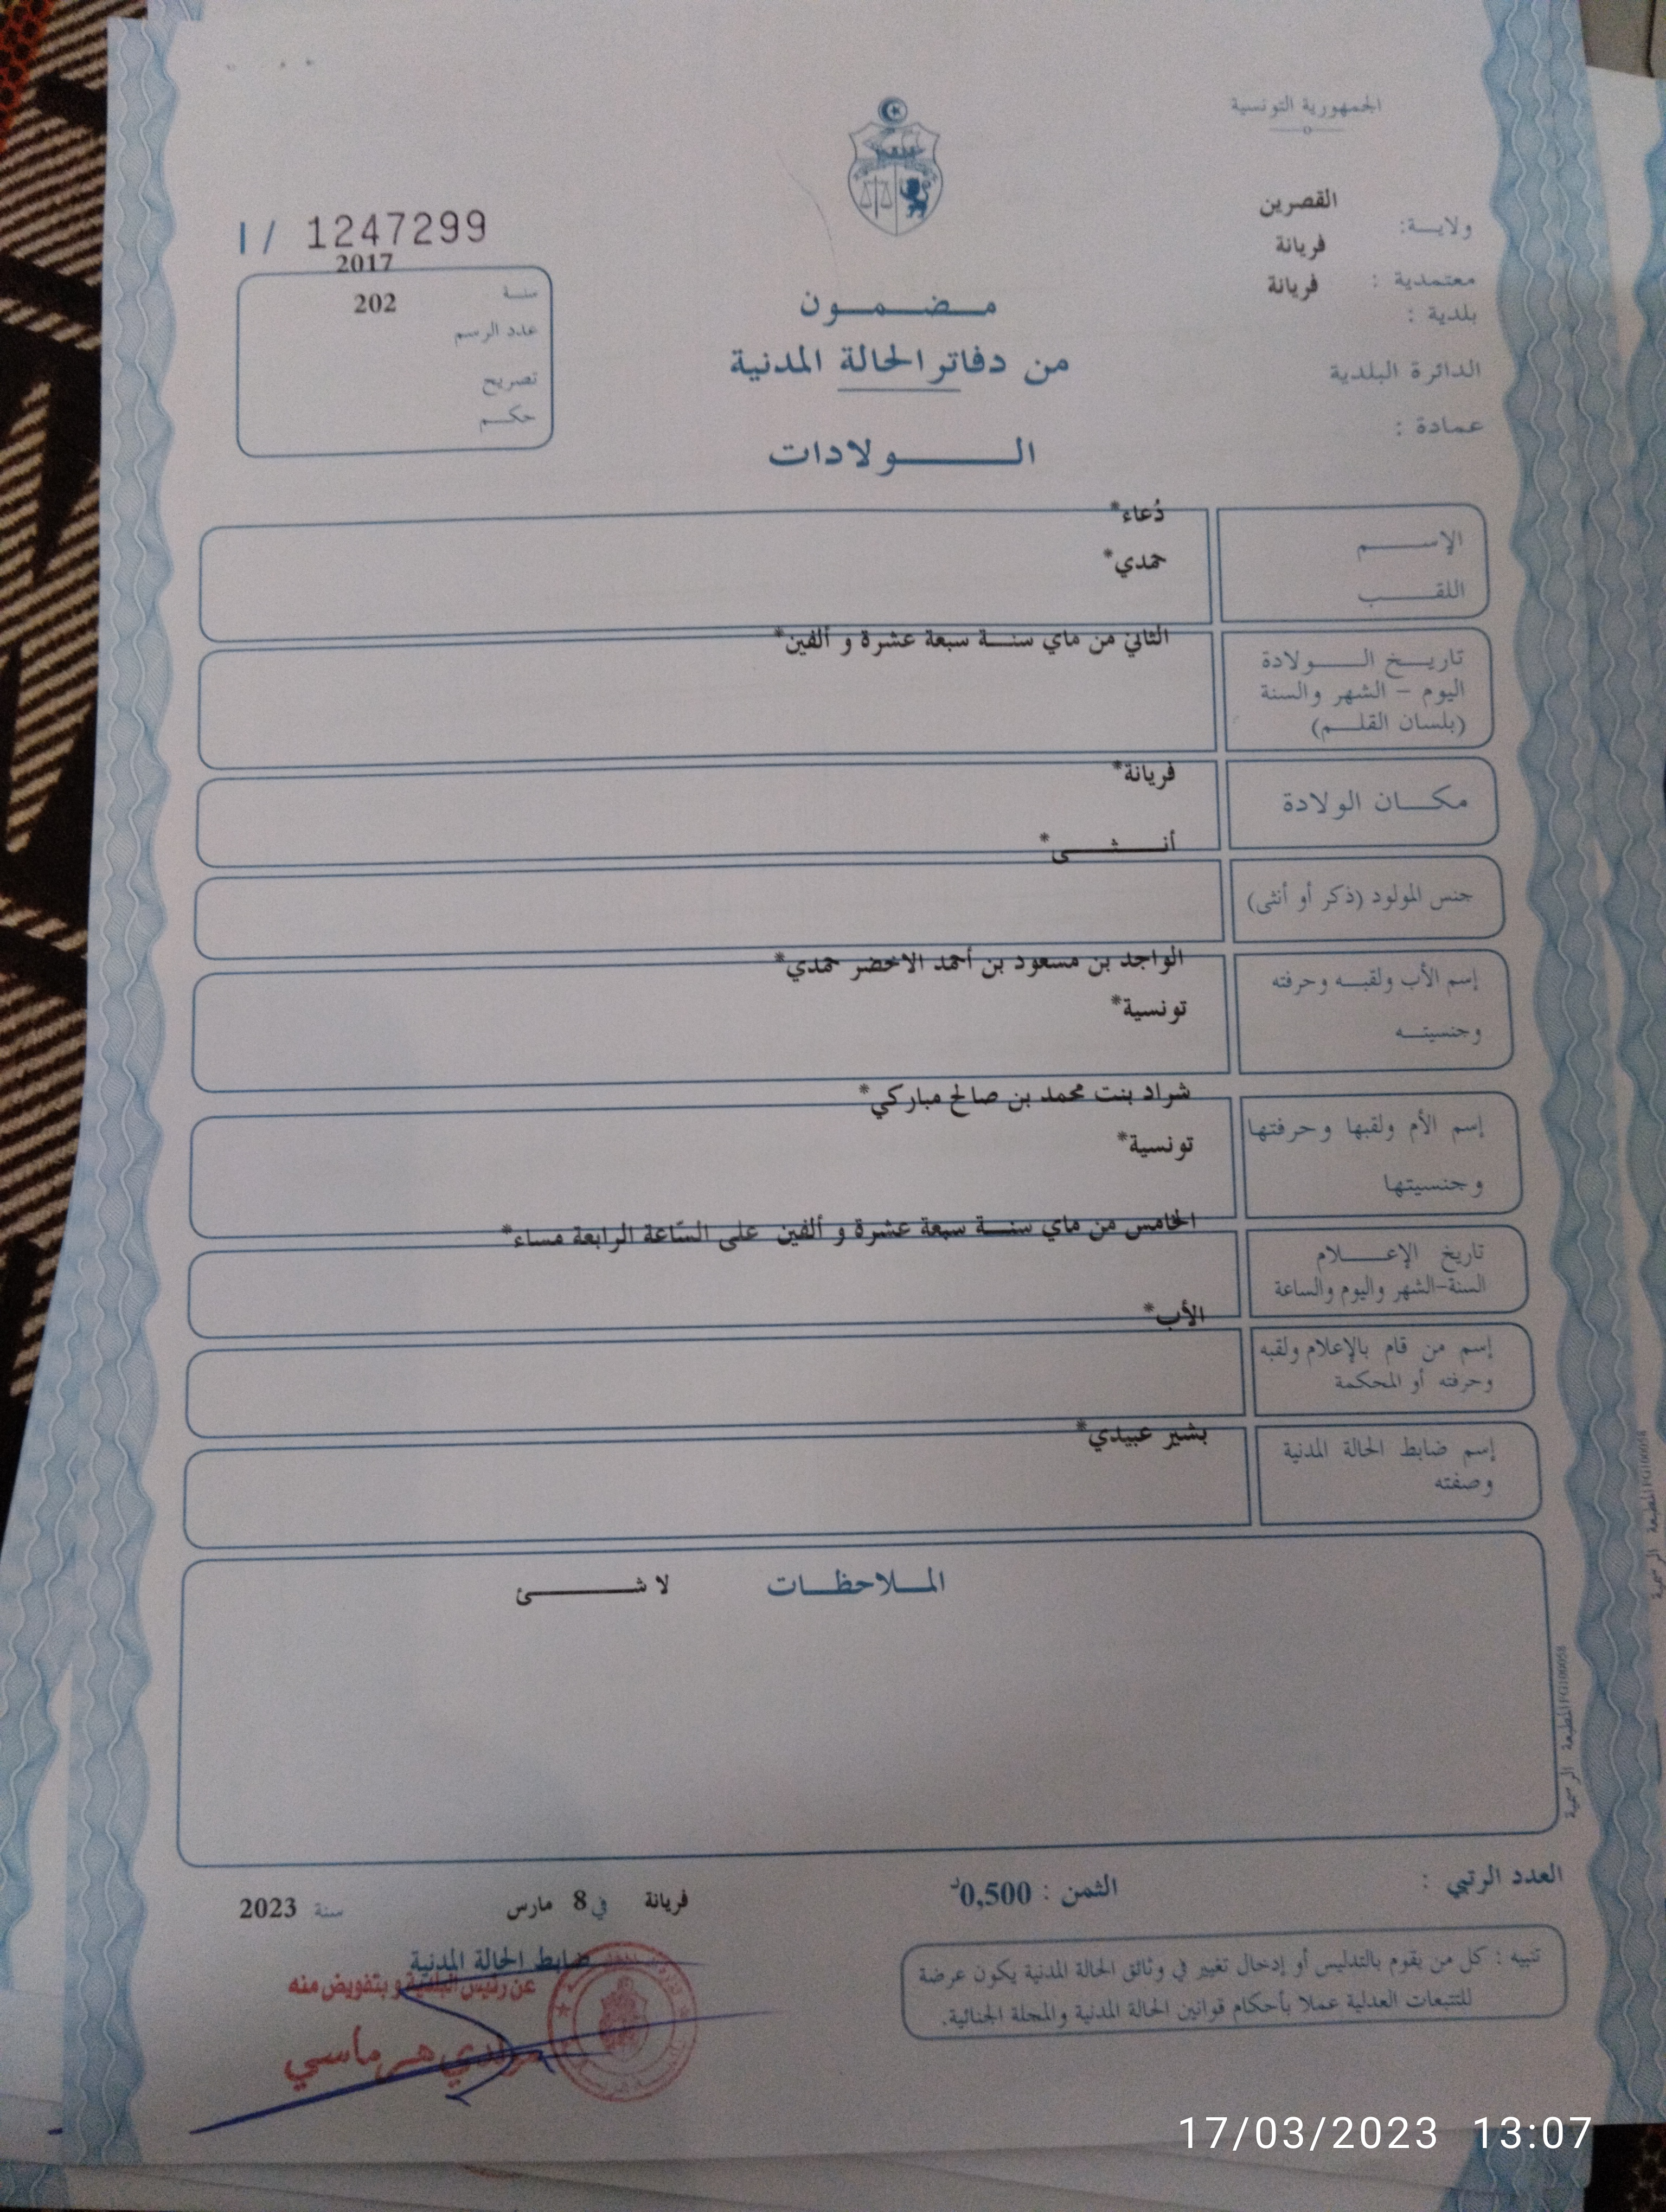 الجمهورية التونسية
القصرين
ولايـــة:
فريانة
معتمدية :
فريانة
بلدية :
الدائرة البلدية
عمادة :
I / 1247299
2017
سنة
202
عدد الرسم
تصريح
حكـــم
مـضـمـون
من دفاتر الحالة المدنية
الـولادات
الإســـم
دُعاء*
اللقـــب
حمدي*
تاريـــخ الـــولادة
اليوم - الشهر والسنة
(بلسان القلـــم)
الثاني من ماي سنـــة سبعة عشرة و ألفين*
مكـــان الولادة
فريانة*
جنس المولود (ذكر أو أنثى)
أنـــثـــى*
إسم الأب ولقبـــه وحرفته
وجنسيتـــه
الواجد بن مسعود بن أحمد الاخضر حمدي*
تونسية*
إسم الأم ولقبها وحرفتها
وجنسيتها
شراد بنت محمد بن صالح مباركي*
تونسية*
تاريخ الإعـــلام
السنة-الشهر واليوم والساعة
الخامس من ماي سنـــة سبعة عشرة و ألفين على السّاعة الرابعة مساء*
إسم من قام بالإعلام ولقبه
وحرفته أو المحكمة
الأب*
إسم ضابط الحالة المدنية
وصفته
بشير عبيدي*
المـــلاحظـــات
لا شـــئ
المطبعة الرسمية PG100058
المطبعة الرسمية PG100058
العدد الرتبي :
الثمن : 0,500د
فريانة في 8 مارس سنة 2023
ضابط الحالة المدنية
عن رئيس البلدية و بتفويض منه
هرماسي
تنبيه : كل من يقوم بالتدليس أو إدخال تغيير في وثائق الحالة المدنية يكون عرضة
للتتبعات العدلية عملا بأحكام قوانين الحالة المدنية والمجلة الجنائية.
17/03/2023 13:07